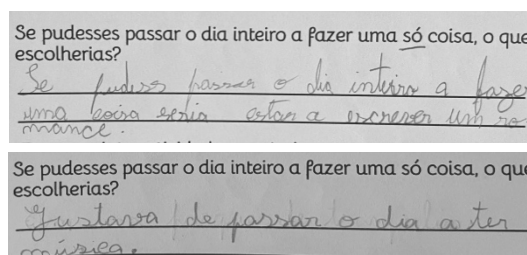 Se pudesses passar o dia inteiro a fazer uma só coisa, o que
escolherias?
Se pudesss passar o dia inteiro a faze
uma coisa seria estar a escrever um ro
mance.
Se pudesses passar o dia inteiro a fazer uma só coisa, o que
escolherias?
Gustava de passar o dia a ter
música.